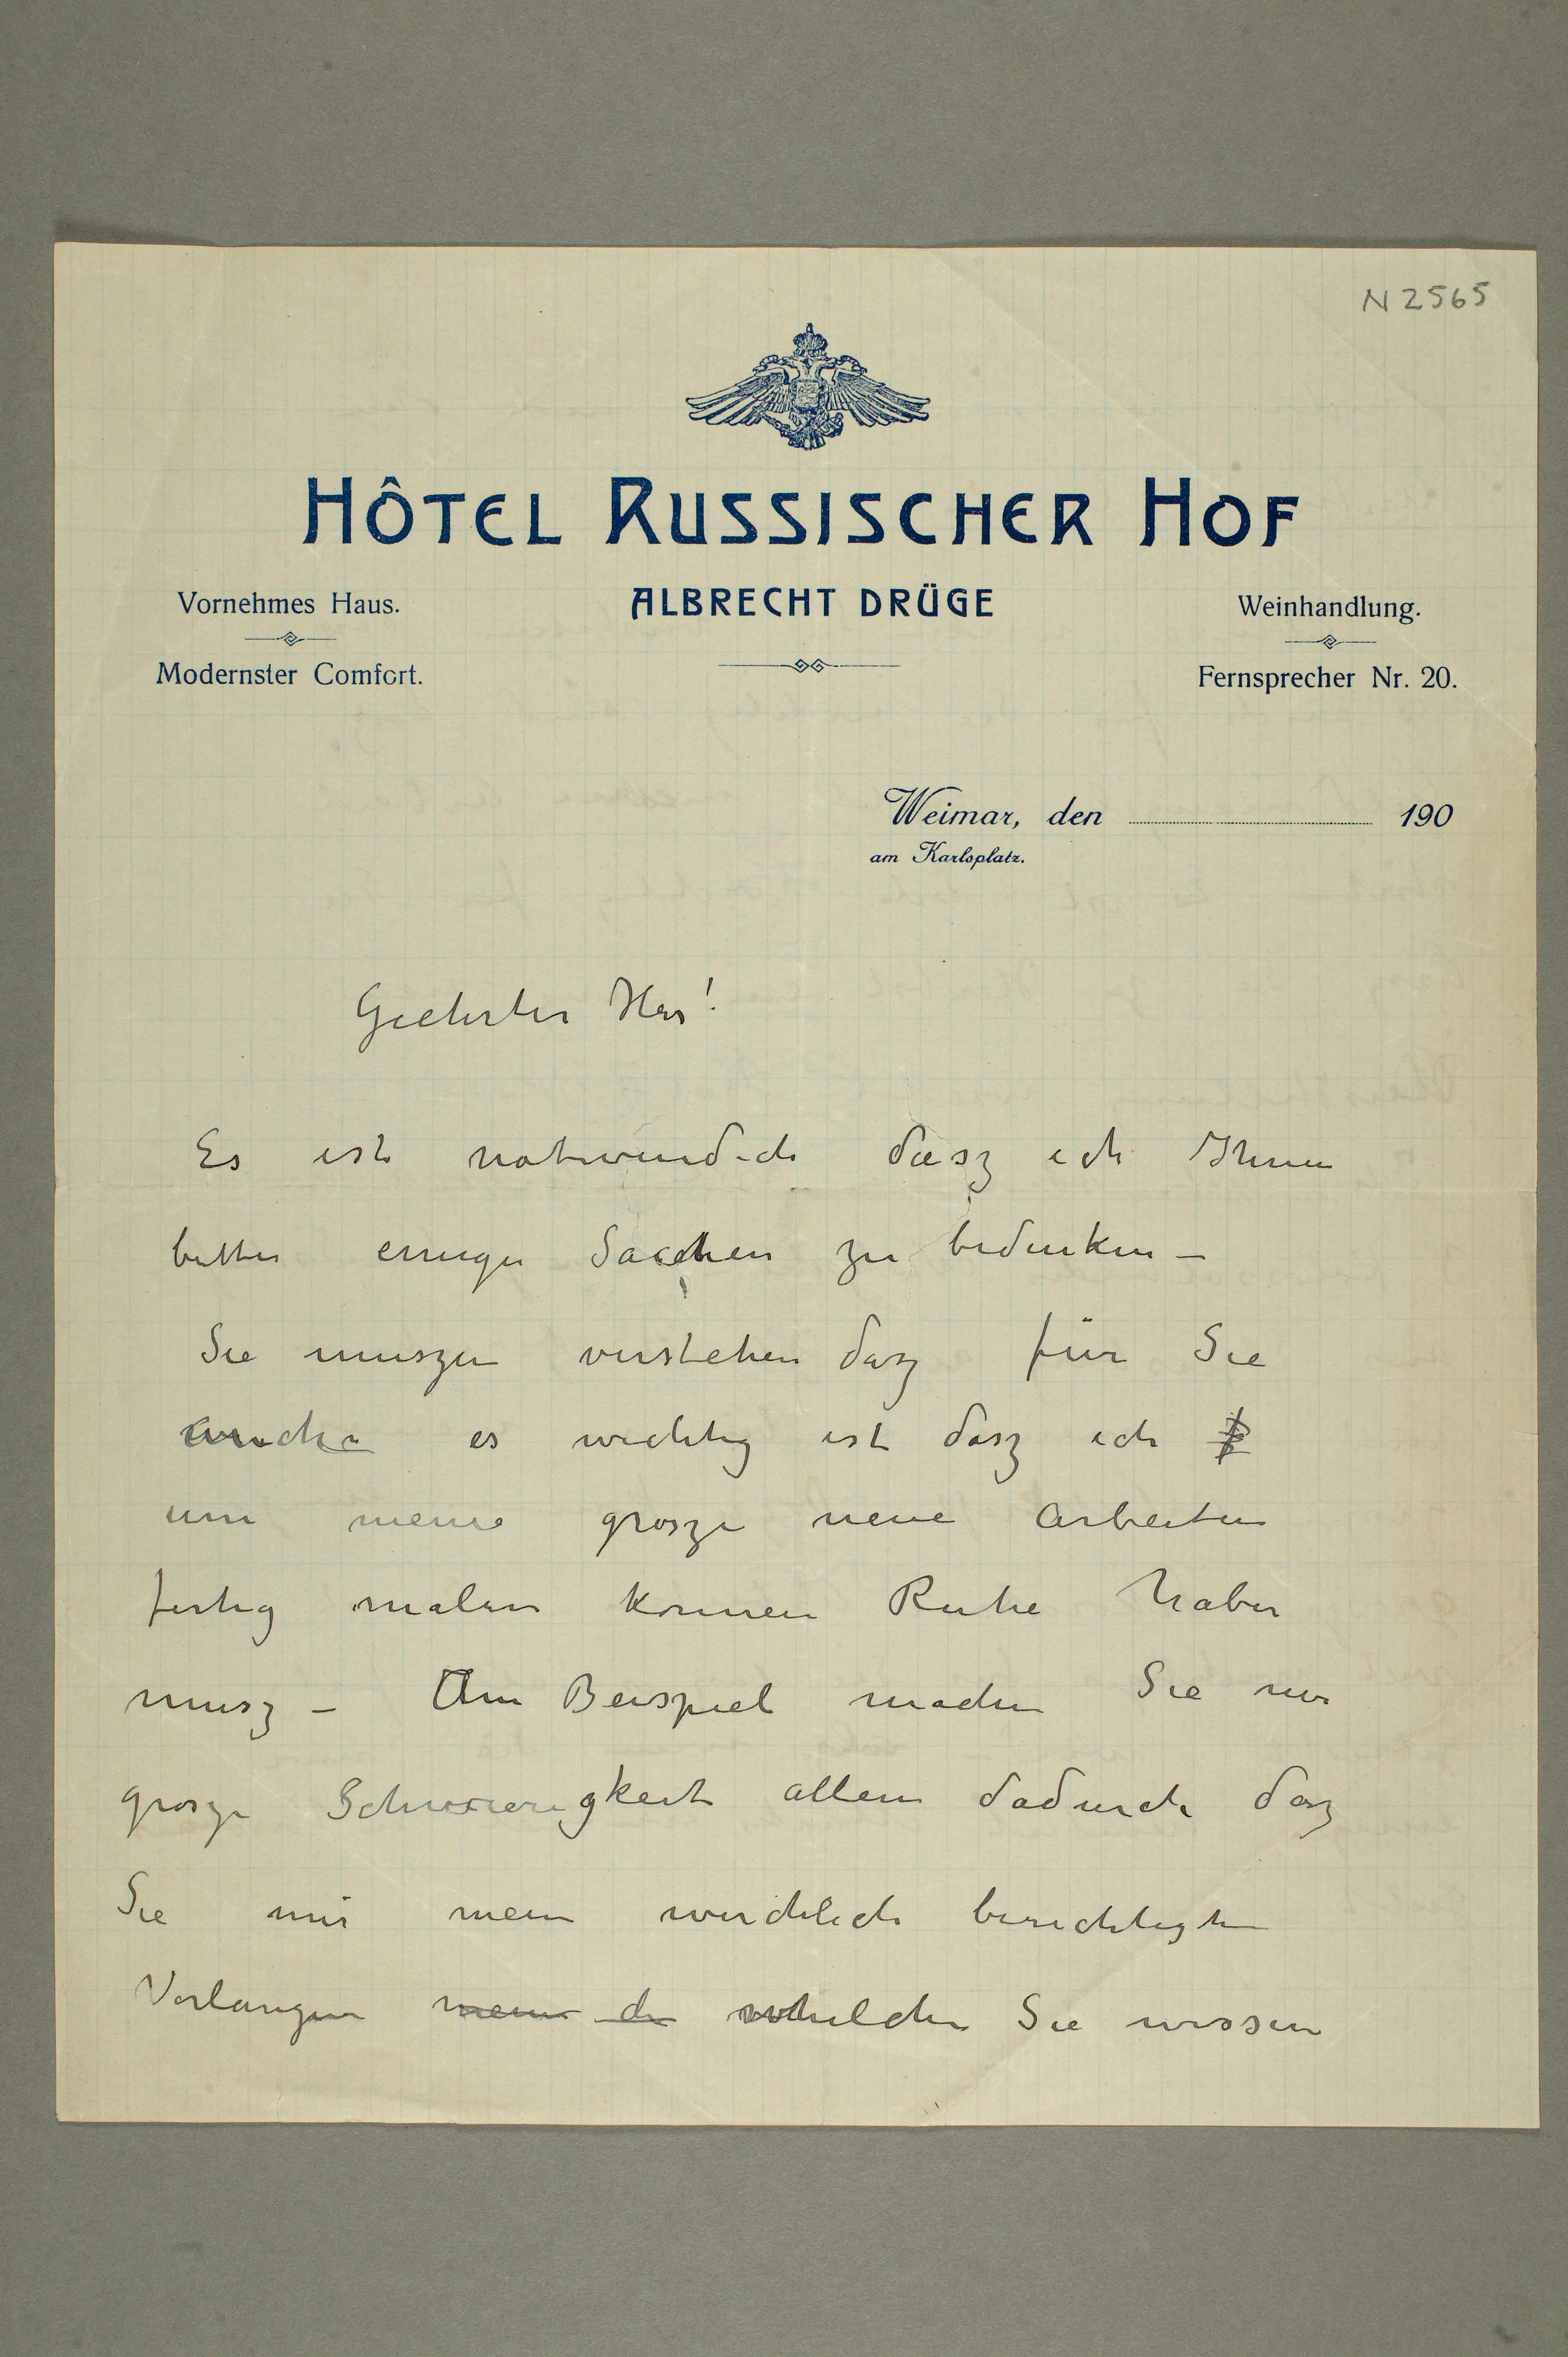 N 2565
HÔTEL RUSSISCHER HOF
Vornehmes Haus. ALBRECHT DRÜGE Weinhandlung.
Modernster Comfort. Fernsprecher Nr. 20.
Weimar, den 190
am Karlsplatz.
Geehrter Herr!
Es ist notwendich dasz ich Ihnen
bitte einige Sachen zu bedenken –
Sie muszen verstehen dasz für Sie
auch es wichtig ist dasz ich
um meine grosze neue Arbeiten
fertig malen konnen Ruhe haben
musz – Am Beispiel machen Sie mir
grosze Schwierigkeit allein dadurch dasz
Sie mir mein wirchlich berechtigten
Verlangen mein die whelche Sie wissen